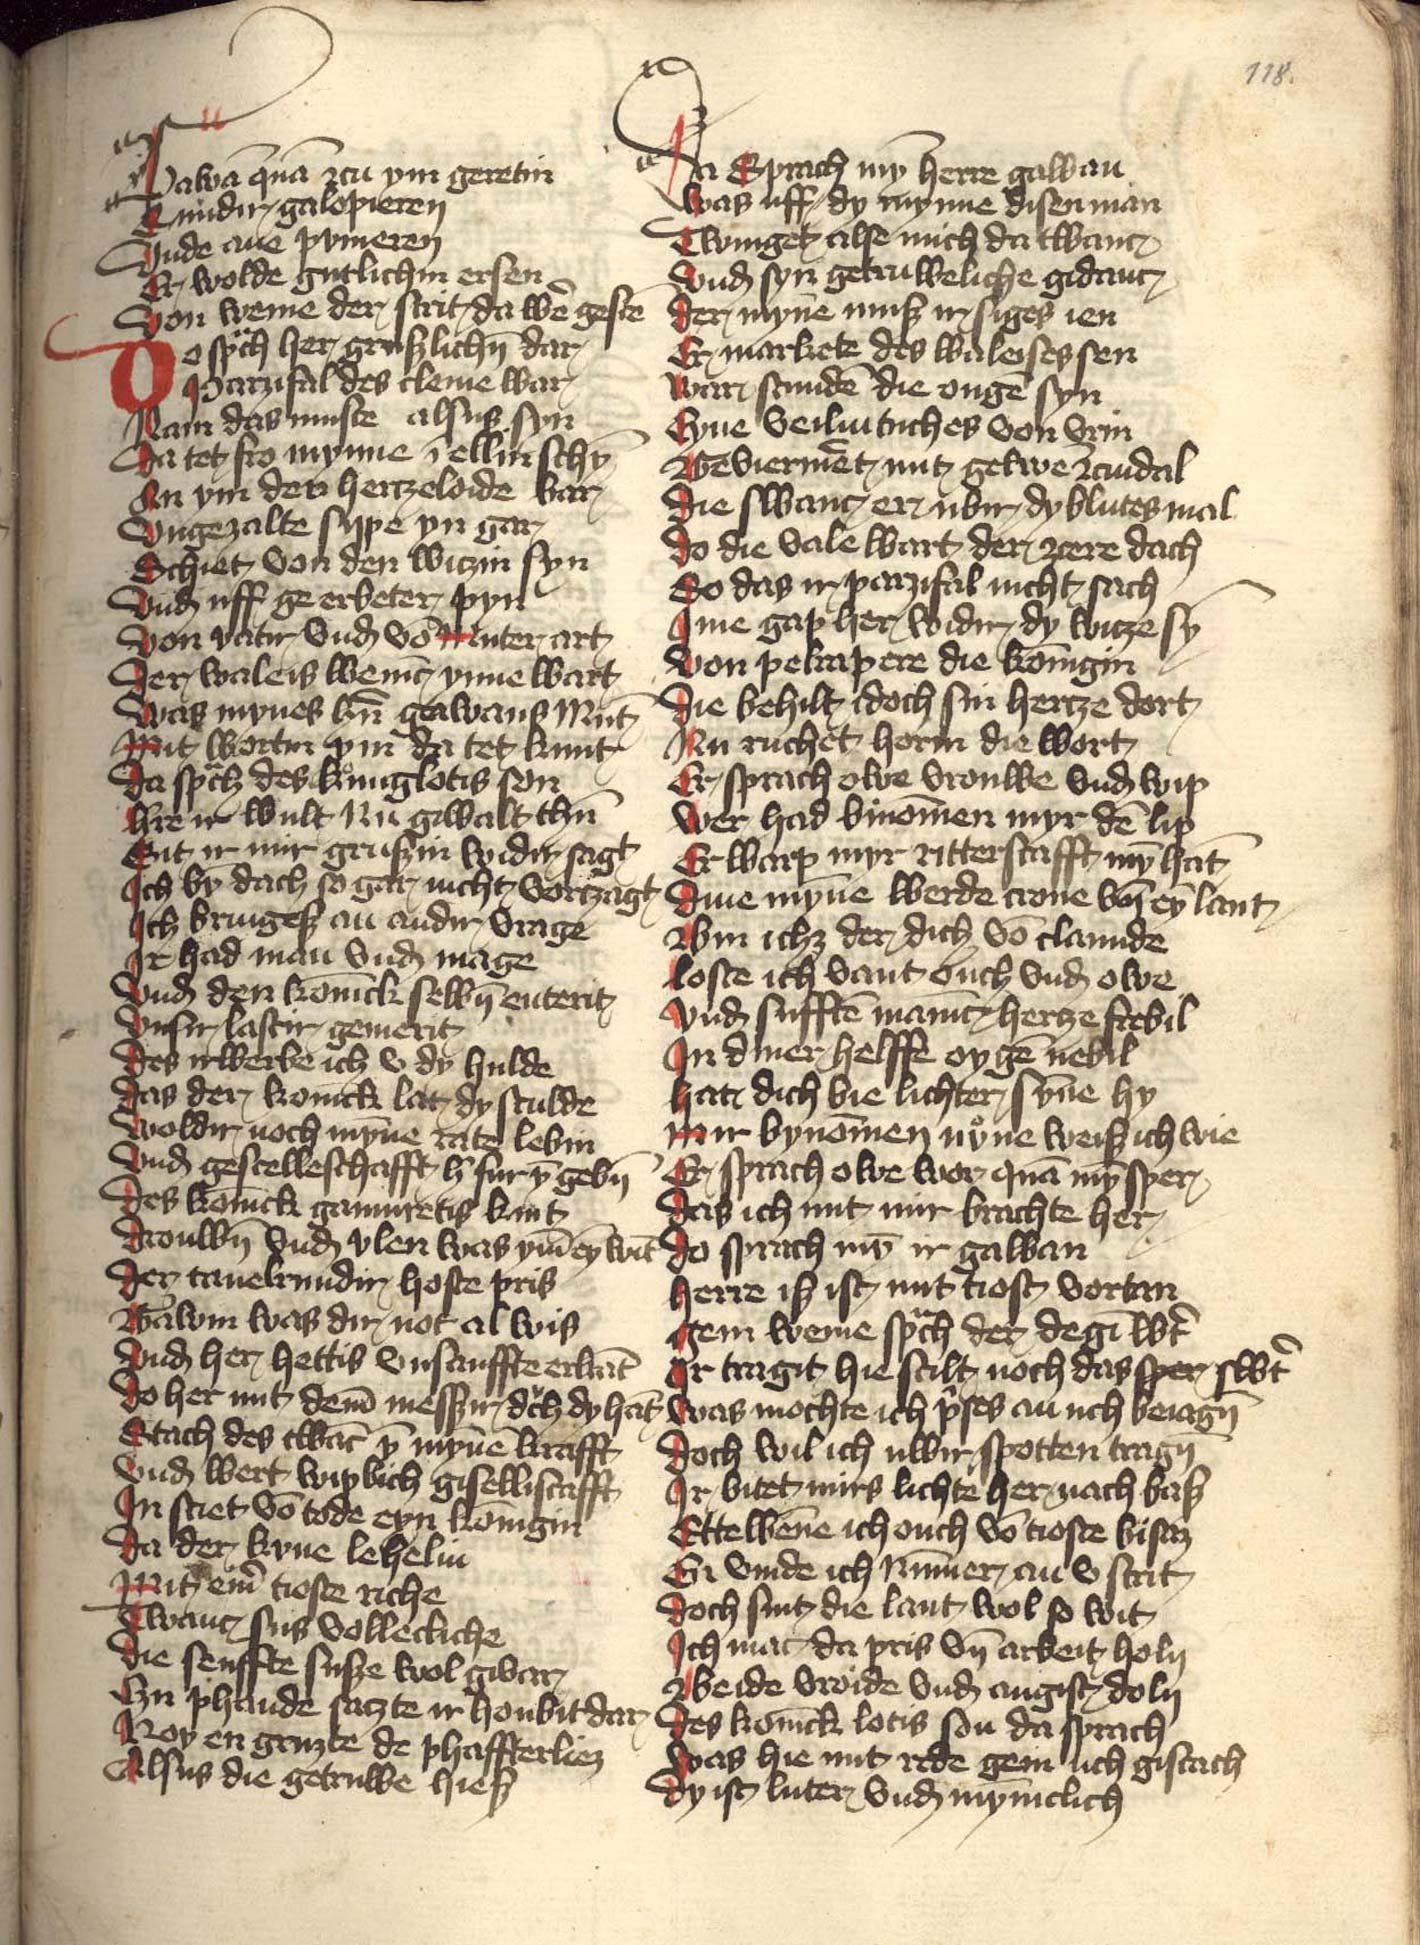 118.
Gawā q̄nā zcu ym geretin
Sundir galopieren
Vnde ane pvnieren
Er wolde gutlichin ersen
Von weme der strit da wē gesce
Do sp̄ch her gruszlichn̄ dar
Parzifal des cleine war
Nam das muste alsus syn
Da tet fro mynne ī ellin schȳ
An ym den hertzeloide bar
Vngezalte sype yn gar
Schiet von den witzin syn
Vnd uff ge erbeter pyn
Von vatir vnd vō muter art
Der waleis wenic ynne wart
Was mynes hrn̄ gawans Mūt
Mit wortin ym da tet kunt
Da sp̄ch des kunig lotis son
Hre ir wult Nu giwalt thū
Sit ir mir gruszin widir sagt
Ich bȳ dach so gar nicht vortzagt
Ich bringesz an andir vrage
Ir had man vnd mage
Vnd den kōnick selbn̄ enterit
Vnsir lastir gemerit
Des irwerbe ich v dy hulde
Das der konick lat dy sculde
Woldir noch myne rate lebin
Vnd gescelleschafft h̄ fur ȳ gebn̄
Des kōnick gamuretis kint
Drouwn̄ vnd vlen was ym̄ ey wīt
Der tauelrundir hoste pris
Gawin was dir not al wis
Vnd her hettis vnsanffte erkāt
Do her mit dem̄ messzir dch dy hāt
Stach des twāc ȳ myne krafft
Vnd wert wiplich giselliscafft
In sciet vō tode eyn kōnigin
Da der kyne lehelin
Mit eim̄ tioste riche
Twanc sus vollecliche
Die senffte susze wol givar
Zu phande satzte ir houbit dar
Roy en gruzte de phaffterliez
Alsus die getruwe hiesz
Da Sprach mȳ herre gawan
Was uff dy mynne disen man
Twinget alse mich da twanc
Vnd syn getruweliche gidanc
Der myne musz ir siges ien
Er markete des waleises sen
War stundē die ougē syn
Eyne veilin tuches von vrin
Gevierniert mit gelwe zcindal
Die swanc er ubir dy blutes mal
Do die vale wart der zcere dach
So das ir parzifal nicht sach
Ime gap her widir dy witze sȳ
Von pelrapere die kōnigin
Die behilt idoch sin hertze dort
Nu ruchet horin die wort
Er sprach owe vrouwe vnd wip
Wer had binōmen myr dē lip
Er warp myr ritterscafft mȳ hāt
Dine mȳne werde crone vn̄ eȳ lant
Bin ichz der dich vō clamide
Loste ich vant ouch vnd owe
Vnd sufftē manic hertze frebil
In diner helffe oygē nebil
Hat dich bie lichter sȳne hy
Mir bynōmen nỹne weisz ich wie
Er sprach owe wor quā mȳ sper
Das ich mit mir brachte her
Do sprach mȳ ir gawan
Herre isz ist mit tiost vortan
Gein weme sp̄ch der degī wt̄
Ir tragit hie scilt noch das sper swt̄
Was mochte ich p̄ses an uch beiagn̄
Doch wil ich uwir spotten tragn̄
Ir bitet mirs lichte her nach basz
Ettewēne ich ouch vō tioste bisaz
Gi vinde ich Nūmer an v strit
Doch sint die lant wol so wit
Ich mac da pris vn̄ arbeit holn
Beide vroide vnd angist doln
Des kōnick lotis son da sprach
Was hie mit rede gein uch giscach
Dy ist luter vnd mȳniclich